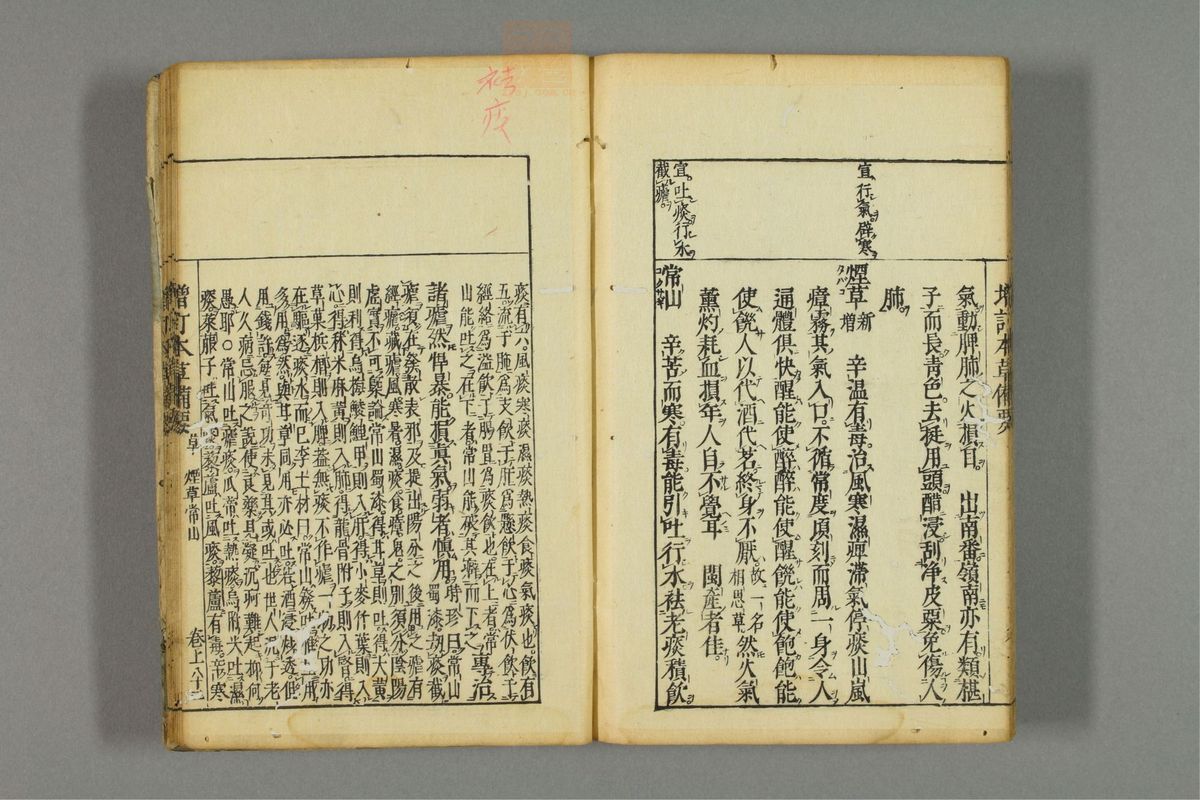 增訂本草備要
氣動脾肺之火損耳 出南番嶺南亦有類椹
子而長青色去挺用頭醋浸刮净皮粟免傷人
肺
宜行氣辟寒
煙草 新增 辛温有毒治風寒濕痹滯氣停痰山嵐
瘴霧其氣入口不循常度頃刻而周一身令人
通體俱快醒能使醉醉能使醒饑能使飽飽能
使饑人以代酒代茗終身不厭 故一名相思草 然火氣
薰灼耗血損年人自不覺耳 閩産者佳
宜吐痰行水
截瘧
常山 辛苦而寒有毒能引吐行水祛老痰積飲
痰有六風痰寒痰濕痰熱痰食痰氣痰也飲有
五流于肺爲支飲于肝爲懸飲于心爲伏飲于
經絡爲溢飲于腸胃爲痰飲也在上者常
山能吐之在下者常山能破其癖而下之 專治
諸瘧然悍暴能損真氣弱者慎用 時珍曰常山
蜀漆劫痰截
瘧須在發散表邪及提出陽分之後用之瘧有
經瘧臟瘧風寒暑濕痰食瘴鬼之別須分陰陽
虚實不可槩論常山蜀漆得甘草則吐得大黄
則利得烏梅鯪鯉甲則入肝得小麥竹葉則入
心得秫米麻黄則入肺得龍骨附子則入腎得
草菓檳榔則入脾蓋無痰不作瘧一物之功亦
在驅逐痰水而已李士材曰常山發吐惟生用
多用爲然與甘草同用亦必吐若酒浸炒透但
用錢許每見奇功未見其或吐也世人泥于老
人久病忌服之說使良藥見疑沉疴難起抑何
愚耶〇常山吐瘧痰瓜蒂吐熱痰烏附尖吐濕
痰萊菔子吐氣痰藜蘆吐風痰藜蘆有毒辛寒
增訂本草備要 草 煙草常山 卷上六十二